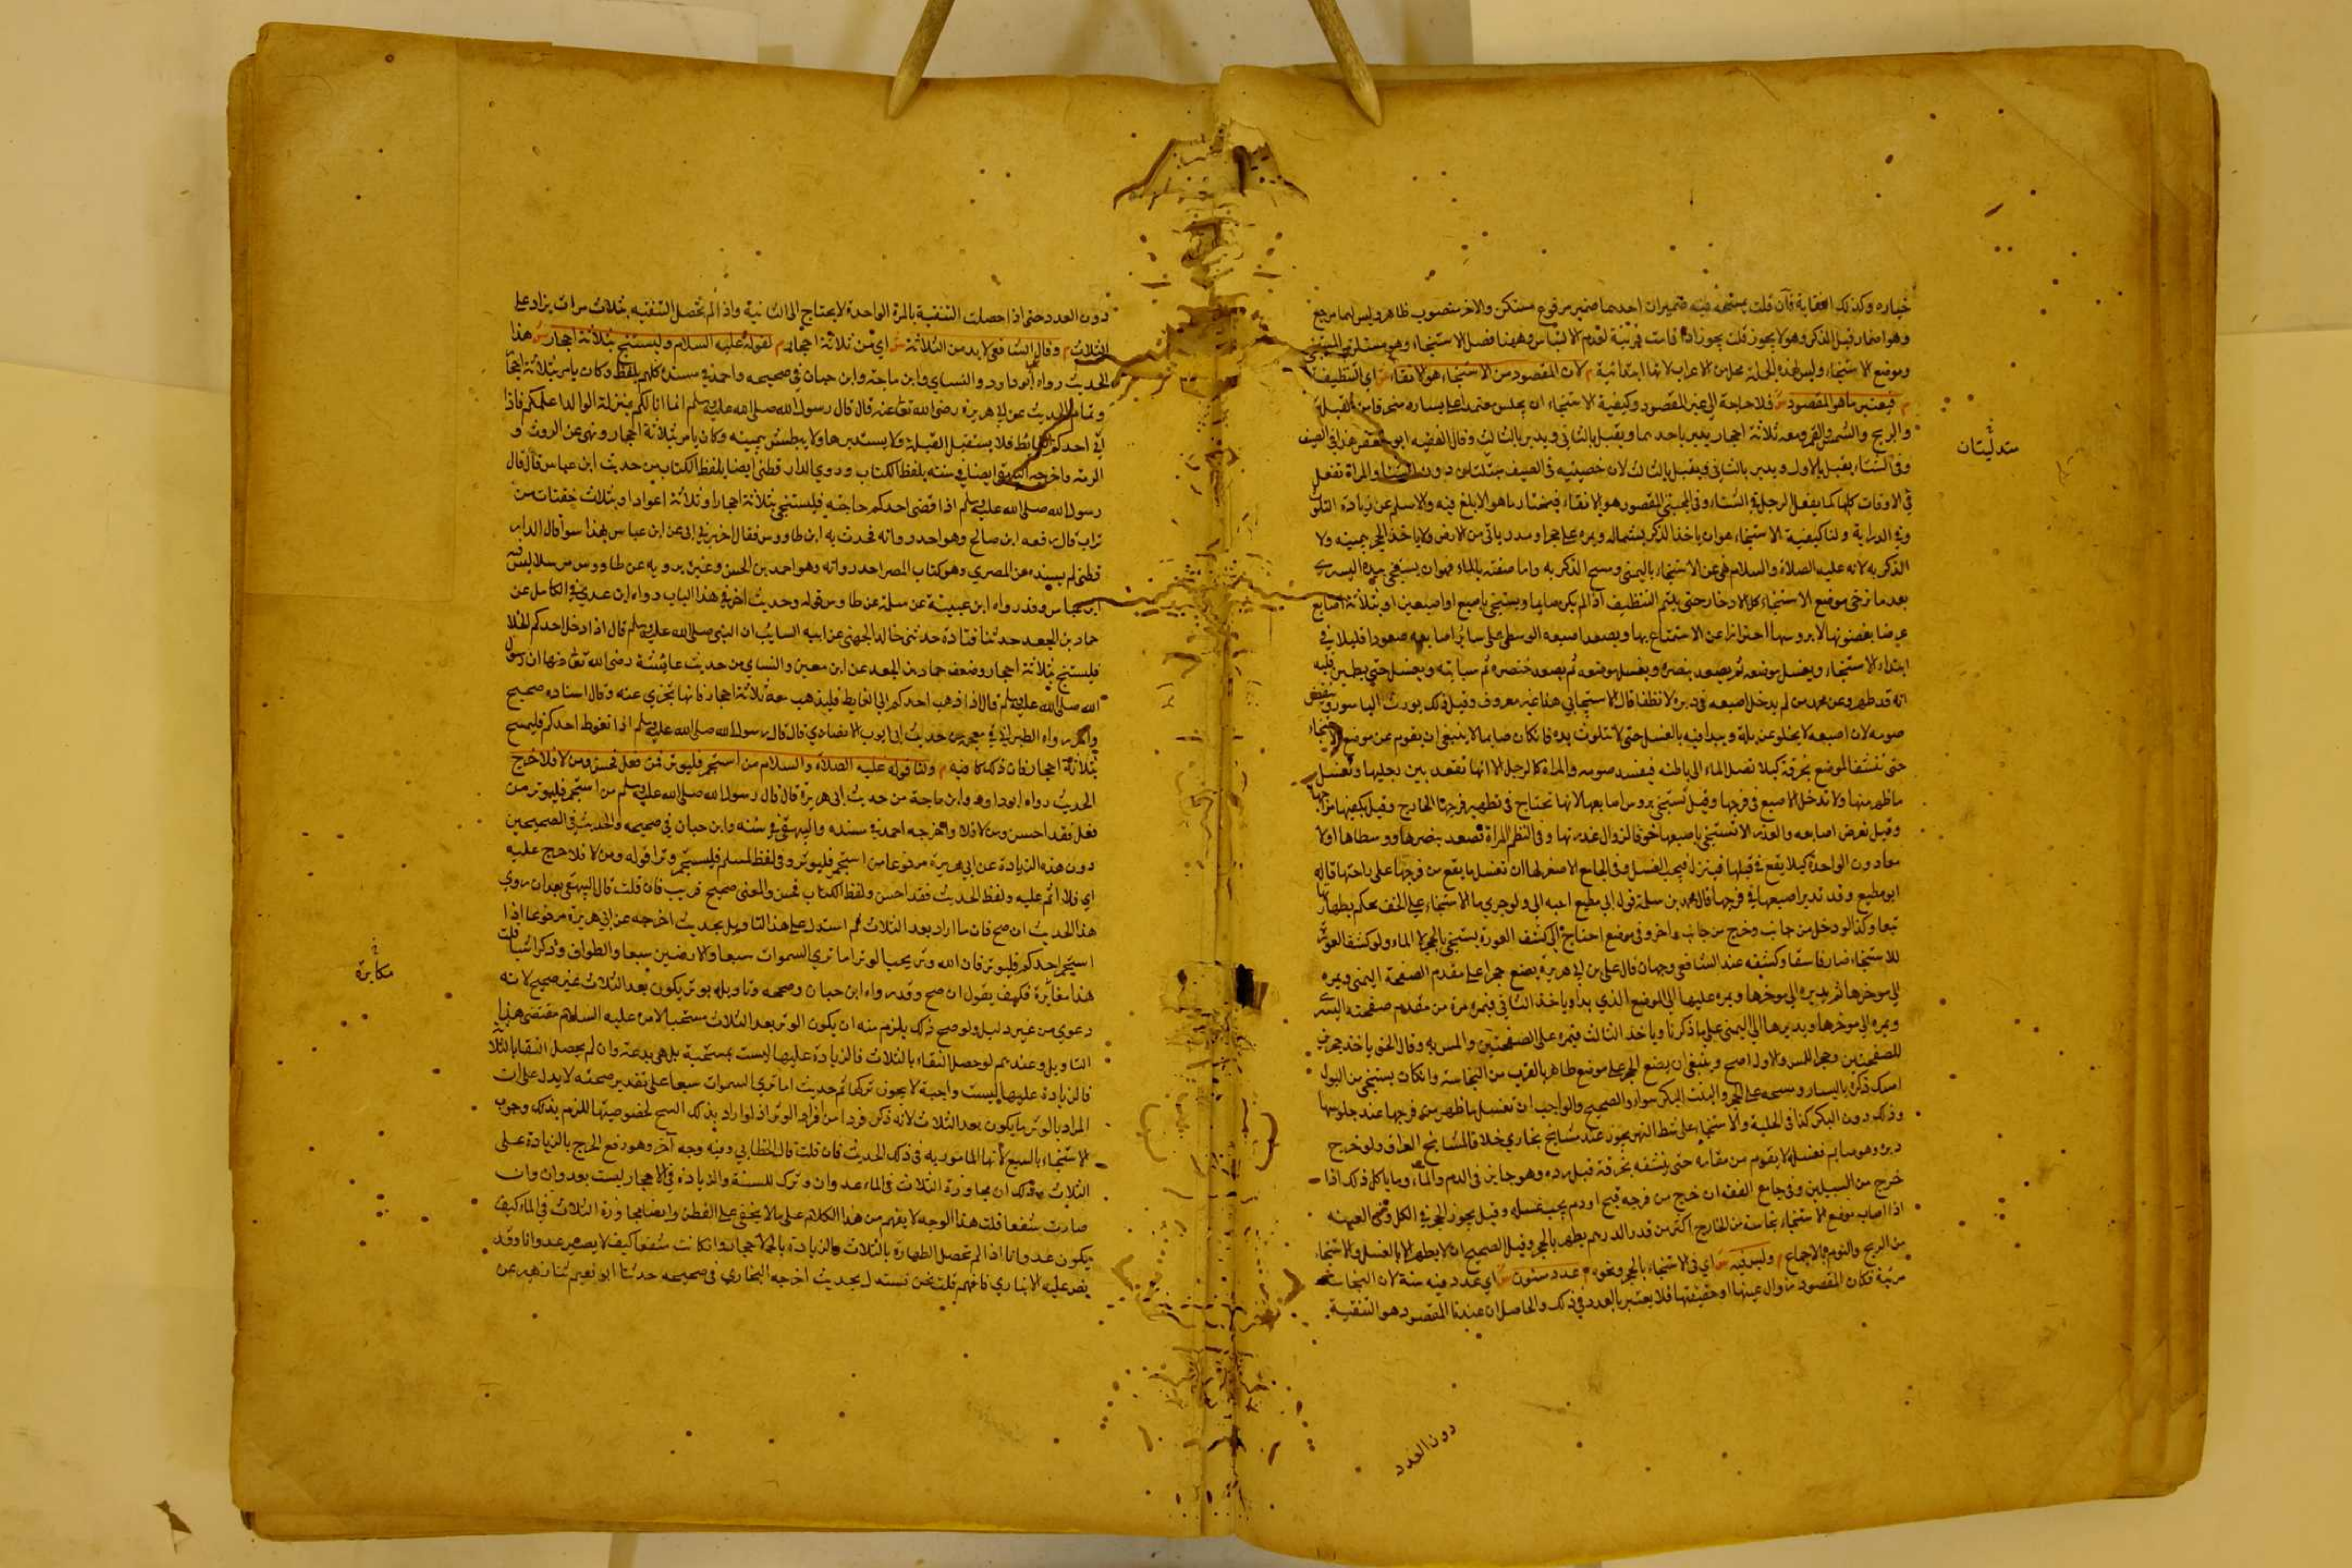 خياره وكذلك العقاية فان قلت يمسحه فيه ضميران احدهما ضمير مرفوع مستكن والاخر منصوب ظاهر وليس لهما مرجع
وهو اضمار قبل الذكر وهو لا يجوز قلت يجوز اذا قامت قرينة لعدم الالتباس وههنا فصل الاستنجاء وهو مستلزم المستنجي
وموضع الاستنجاء وليس لهذه الجملة محل من الاعراب لانها ابتدائية م لان المقصود من الاستنجاء هو الانقاء ش اي التنظيف
م فيعتبر ما هو المقصود ش فلا حاجة الي غير المقصود وكيفية الاستنجاء ان يجلس معتمدا على يساره منحرفا من القبلة
والريح والشمس والقمر ومعه ثلاثة احجار يدبر باحدهما ويقبل بالثاني ويدبر بالثالث وقال الفقيه ابو جعفر هذا في الصيف
وفي الشتاء يقبل بالاول ويدبر بالثاني ويقبل بالثالث لان خصيتيه في الصيف متدلتان دون الشتاء والمراة تفعل
في الاوقات كلها كما يفعل الرجل في الشتاء وفي المجتبى المقصود هو الانقاء فيختار ما هو الابلغ فيه والاسلم عن زيادة التلوث
وفي الدراية ولنا كيفية الاستنجاء هو ان ياخذ الذكر بشماله ويمره على حجر او مدر ياتي من الارض ولا ياخذ الحجر بيمينه ولا
الذكر به لانه عليه الصلاة والسلام نهى عن الاستنجاء باليمنى ومسح الذكر به واما صفته بالماء فهو ان يستنجي بيده اليسرى
بعد ما ترخى موضع الاستنجاء كل الارخاء حتى يتم التنظيف اذا لم يكن صايما ويستنجي باصبع او اصبعين او بثلاثة اصابع
عرضا بغصونها لا بروسها احترازا عن الاستمتاع بها ويصعد اصبعه الوسطى على سائر اصابعه صعودا قليلا في
ابتداء الاستنجاء ويغسل موضعه ثم يصعد بنصره ويغسل موضعه ثم يصعد خنصره ثم سبابته ويغسل حتى يطمين قلبه
انه قد طهر وعن محمد من لم يدخل اصبعه في دبره لا تنظفا قال الاستيجابي هذا غير معروف وقيل ذلك يورث الباسور وينقض
صومه لان اصبعه لا يخلو عن بلة ويبدا فيه بالغسل حتى لا تتلوث يده فان كان صايما لا ينبغي ان يقوم عن موضع الاستنجاء
حتى تنشف الموضع بخرقة كيلا تصل الماء الى باطنه فيفسد صومه والمراة كالرجل الا انها تقعد بين رجليها وتغسل
ما ظهر منها ولا تدخل الاصبع في فرجها وقيل تستنجي بروس اصابعها لانها تحتاج في تطهير فرجها الخارج وقيل يكفيها من اجمها
وقيل بعرض اصابعه والعذرا لا تستنجي باصبعها خوفا لزوال عذرتها وفي النظم المراة تصعد بنصرها ووسطاها اولا
معا دون الواحدة كيلا يقع في قبلها فينزل فيجب الغسل وفي الجامع الاصغر لها ان تغسل ما يقع من فرجها على راحتها قاله
ابو مطيع وقد تدير اصبعها في فرجها قال محمد بن سلمة قول ابي مطيع احب الي ولو جرى ماء الاستنجاء على الخف يحكم بطهارته
تبعا وكذا لو دخل من جانب وخرج من جانب اخر وفي موضع احتاج الى كشف العورة يستنجي بالحجر لا الماء ولو كشف العورة
للاستنجاء صار فاسقا وكشفه عند الشافعي وجهان قال على بن ابي هريرة يضع حجرا على مقدم الصفحة اليمنى ويمره
الى موخرها ثم يديره الى موخرها ويمره عليها الى الموضع الذي بدا وياخذ الثاني فيمره مرة من مقدم صفحته اليسرى
ويمره الى موخرها ويديرها الى اليمنى على ما ذكرنا وياخذ الثالث فيمره على الصفحتين والمسربه وقال الحنو ياخذ حجر في
للصفحتين وحجرا للمسر والاول اصح وينبغي ان يضع الحجر على موضع طاهر بالقرب من النجاسة وان كان يستنجي من البول
امسك ذكره باليسار ومسحه على الحجر والبنت البكر سواء والصحيح والواجب ان تغسل ما ظهر من فرجها عند جلوسها
وذلك دون البكر كذا في الحلية والاستنجاء على شط النهر يجوز عند مشايخ بخاري خلافا لمشايخ العراق ولو خرج
دبره وهو صايم فغسل لا يقوم من مقامه حتى ينشفه بخرقة قبل رده وهو جايز في الدم والماء وما ياكل ذلك اذا
خرج من السبيلين وفي جامع الفقه ان خرج من فرجه قيح او دم يجب غسله وقيل يجوز الحجر في الكل وفي العينه
اذا اصاب موضع الاستنجاء نجاسة من الخارج اكثر من قدر الدرهم يطهر بالحجر وقيل الصحيح انه لا يطهر الا بالغسل والاستنجاء
من الريح والنوم بالاجماع م وليس فيه ش اي في الاستنجاء بالحجر ونحوه م عدد مسنون ش اي عدد فيه سنة لان النجاسة
مرئية فكان المقصود زوال عينها او حقيقتها فلا يعتبر بالعدد في ذلك والحاصل ان عندنا المقصود هو التنقية
دون العدد
متدليتان
دون العدد حتى اذا حصلت التنقية بالمرة الواحدة لا يحتاج الى الثانية واذا لم تحصل التنقيه بثلاث مرات يزاد على
الثلاث م وقال الشافعي لا بد من الثلاثة ش اي من ثلاثة احجار م لقوله عليه السلام وليستنج بثلاثة احجار ش هذا
الحديث رواه ابو داود والنساي وابن ماجة وابن حبان في صحيحه واحمد في مسنده كلهم بلفظ وكان يامر بثلاثة احجار
وتمام الحديث عن ابي هريرة رضي الله تعالى عنه قال قال رسول الله صلى الله عليه وسلم انما انا لكم بمنزلة الوالد اعلمكم فاذا
اتي احدكم الغائط فلا يستقبل القبلة ولا يستدبرها ولا يبطش بيمينه وكان يامر بثلاثة احجار ونهى عن الروث و
الرمة واخرجه البيهقي ايضا في سننه بلفظ الكتاب وروي الدار قطني ايضا بلفظ الكتاب من حديث ابن عباس قال قال
رسول الله صلى الله عليه وسلم اذا قضى احدكم حاجته فليستنجي بثلاثة احجار او ثلاثة اعواد او بثلاث حفنات من
تراب قال رفعه ابن صالح وهو احد رواته فحدث به ابن طاووس فقال اخبرني ابي عن ابن عباس بهذا سوا قال الدار
قطني لم يسنده عن المصري وهو كتاب المصر احد رواته وهو احمد بن الحسن وغيره يرويه عن طاووس مرسلا ليس فيه
ابن عباس وقد رواه ابن عيينة عن سلمة عن طاوس قوله وحديث اخر في هذا الباب رواه ابن عدي في الكامل عن
حماد بن الجعد حدثنا قتادة حدثني خالد الجهني عن ابيه السايب ان النبي صلى الله عليه وسلم قال اذا دخل احدكم الخلا
فليستنج بثلاثة احجار وضعف حماد بن الجعد عن ابن معين والنساي من حديث عائشة رضي الله تعالى عنها ان رسول
الله صلى الله عليه وسلم قال اذا ذهب احدكم الي الغايط فليذهب معه ثلاثة احجار فانها تجزي عنه وقال اسناده صحيح
واخر رواه الطبراني في معجمه من حديث ابي ايوب الانصاري قال قال رسول الله صلى الله عليه وسلم اذا تغوط احدكم فليمسح
بثلاثة احجار فان ذلك كافيه م ولنا قوله عليه الصلاة والسلام من استجمر فليوتر فمن فعل فحسن ومن لا فلا حرج
الحديث رواه ابو داود وابن ماجة من حديث ابي هريرة قال قال رسول الله صلى الله عليه وسلم من استجمر فليوتر من
فعل فقد احسن ومن لا فلا واخرجه احمد في مسنده والبيهقي في سننه وابن حبان في صحيحه والحديث في الصحيحين
دون هذه الزيادة عن ابي هريرة مرفوعا من استجمر فليوتر وفي لفظ لمسلم فليستجمر وترا قوله ومن لا فلا حرج عليه
اي فلا اثم عليه ولفظ الحديث فقد احسن ولفظ الكتاب فحسن والمعنى صحيح قريب فان قلت قال البيهقي بعد ان روي
هذا الحديث ان صح فان ما اراد بعد الثلاث ثم استدل على هذا التاويل بحديث اخرجه عن ابي هريرة مرفوعا اذا
استجمر احدكم فليوتر فان الله وتر يحب الوتر اما تري السموات سبعا والارضين سبعا والطواف وذكر اشيا قلت
هذا مغايرة فكيف يقول ان صح وقد رواه ابن حبان وصححه وتاويله بوتر يكون بعد الثلاث غير صحيح لانه
دعوي من غير دليل ولو صح ذلك يلزم منه ان يكون الوتر بعد الثلاث مستحبا لامره عليه السلام مقتضى هذا
التاويل وعندهم لو حصل النقاء بالثلاث فالزيادة عليها ليست بمستحبة بل هي بدعة وان لم يحصل النقا بالثلاث
فالزيادة عليها ليست واجبة لا يجوز تركها ثم حديث اما تري السموات سبعا على تقدير صحته لا يدل على ان
المراد بالوتر ما يكون بعد الثلاث لانه ذكر فردا من افراد الوتر اذ لو اراد بذلك السبح لخصوصيتها للزم بذلك وجوب
الاستنجاء بالسبع لانها المامور به في ذلك الحديث فان قلت قال الخطابي وفيه وجه آخر وهو رفع الحرج بالزيادة على
الثلاث وذلك ان مجاوزة الثلاث في الماء عدوان وترك للسنة والزيادة في الاحجار ليست بعدوان وان
صارت شفعا قلت هذا الوجه لا يفهم من هذا الكلام على ما لا يخفى على الفطن وايضا مجاوزة الثلاث في الماء كيف
يكون عدوانا اذا لم تحصل الطهارة بالثلاث والزيادة بالاحجار وان كانت شفعا كيف لا يصير عدوانا وقد
نص عليه الانباري فافهم قلت نحن نسند ل بحديث اخرجه البخاري في صحيحه حدثنا ابو نعيم ثنا زهير عن
مكابرة